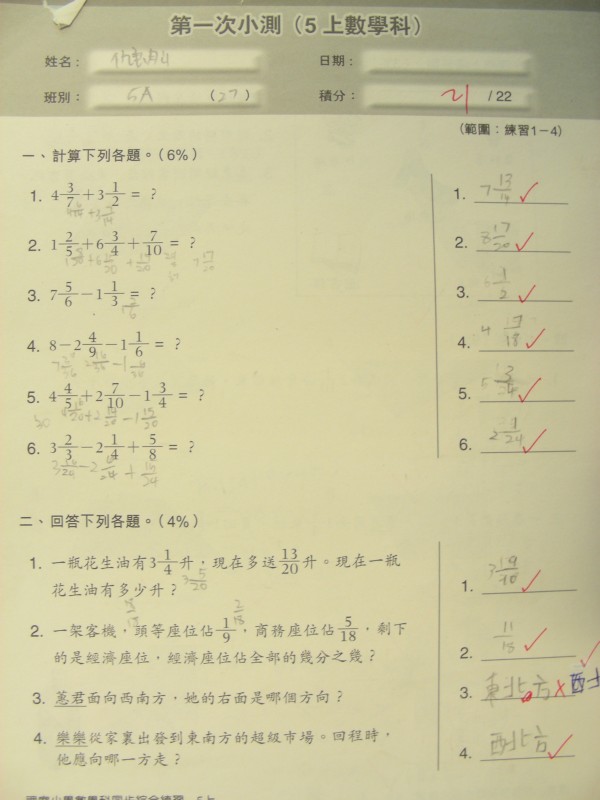 第一次小測（5上數學科）
姓名：
日期：
班別： 5A （27）
積分： 21 / 22
（範圍：練習1－4）
一、計算下列各題。（6%）
1. 4 3/7 + 3 1/2 = ？
1. 7 13/14
2. 1 2/5 + 6 3/4 + 7/10 = ？
2. 8 17/20
3. 7 5/6 － 1 1/3 = ？
3. 1/2
4. 8 － 2 4/9 － 1 1/6 = ？
4. 4 7/18
5. 4 4/5 + 2 7/10 － 1 3/4 = ？
5. 5 3/4
6. 3 2/3 － 2 1/4 + 5/8 = ？
6. 2 1/24
二、回答下列各題。（4%）
1. 一瓶花生油有3 1/4升，現在多送13/20升。現在一瓶
花生油有多少升？
1. 3 19/20
2. 一架客機，頭等座位佔1/9，商務座位佔5/18，剩下
的是經濟座位，經濟座位佔全部的幾分之幾？
2. 11/18
3. 蕙君面向西南方，她的右面是哪個方向？
3. 東北方 西北
4. 樂樂從家裏出發到東南方的超級市場。回程時，
他應向哪一方走？
4. 西北方